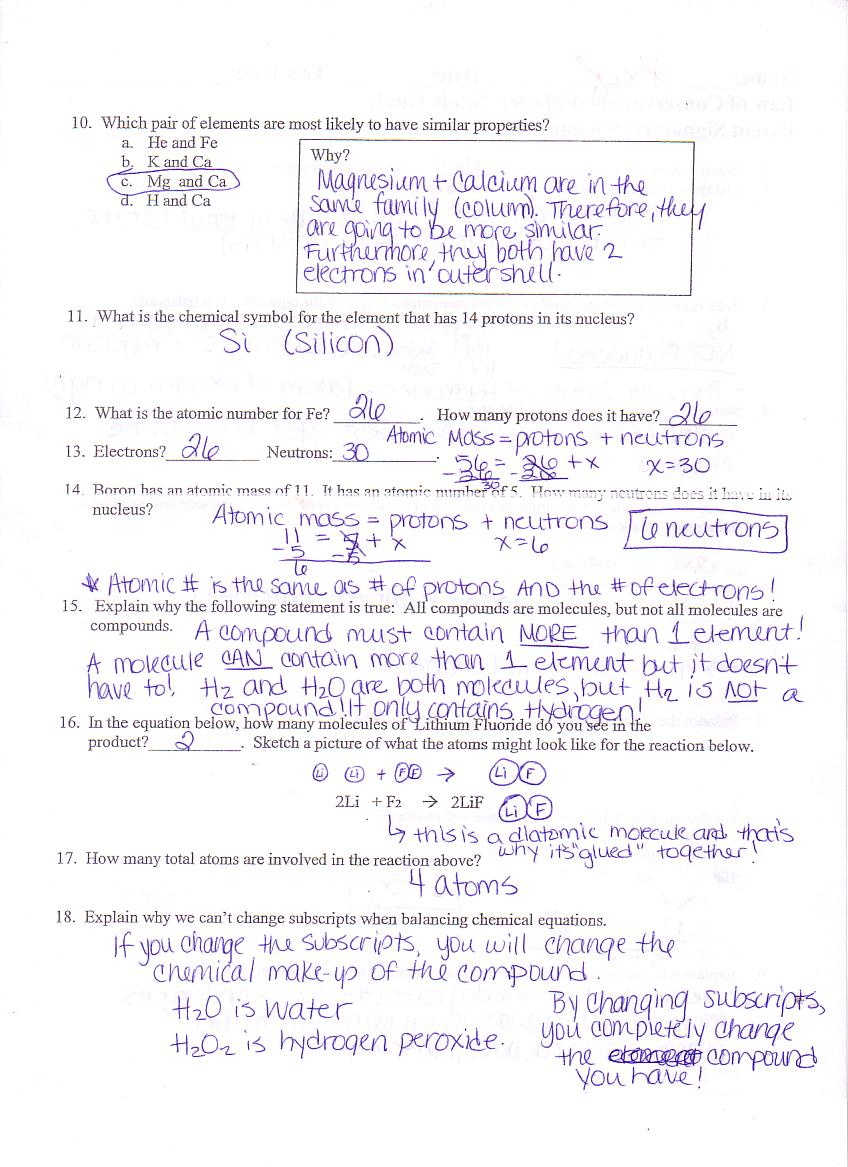 10. Which pair of elements are most likely to have similar properties?
a. He and Fe
b. K and Ca
c. Mg and Ca
d. H and Ca
Why?
Magnesium + Calcium are in the
same family (column). Therefore, they
are going to be more similar.
Furthermore, they both have 2
electrons in outer shell.
11. What is the chemical symbol for the element that has 14 protons in its nucleus?
Si (Silicon)
12. What is the atomic number for Fe? 26. How many protons does it have? 26
Atomic Mass = protons + neutrons
13. Electrons? 26 Neutrons: 30.
56 = 26 + x x=30
-26 -26
30
14. Boron has an atomic mass of 11. It has an atomic number of 5. How many neutrons does it have in its
nucleus?
Atomic mass = protons + neutrons 6 neutrons
11 = 5 + x x=6
-5 -5
6
* Atomic # is the same as # of protons AND the # of electrons!
15. Explain why the following statement is true: All compounds are molecules, but not all molecules are
compounds. A compound must contain MORE than 1 element!
A molecule CAN contain more than 1 element but it doesn't
have to! H2 and H2O are both molecules, but H2 is NOT a
compound! It only contains Hydrogen!
16. In the equation below, how many molecules of Lithium Fluoride do you see in the
product? 2. Sketch a picture of what the atoms might look like for the reaction below.
Li Li + F F → Li F
2Li + F2 → 2LiF Li F
↳ this is a diatomic molecule and that's
why it's "glued" together!
17. How many total atoms are involved in the reaction above?
4 atoms
18. Explain why we can't change subscripts when balancing chemical equations.
If you change the subscripts, you will change the
chemical make-up of the compound.
H2O is water
H2O2 is hydrogen peroxide.
By changing subscripts,
you completely change
the compound
you have!